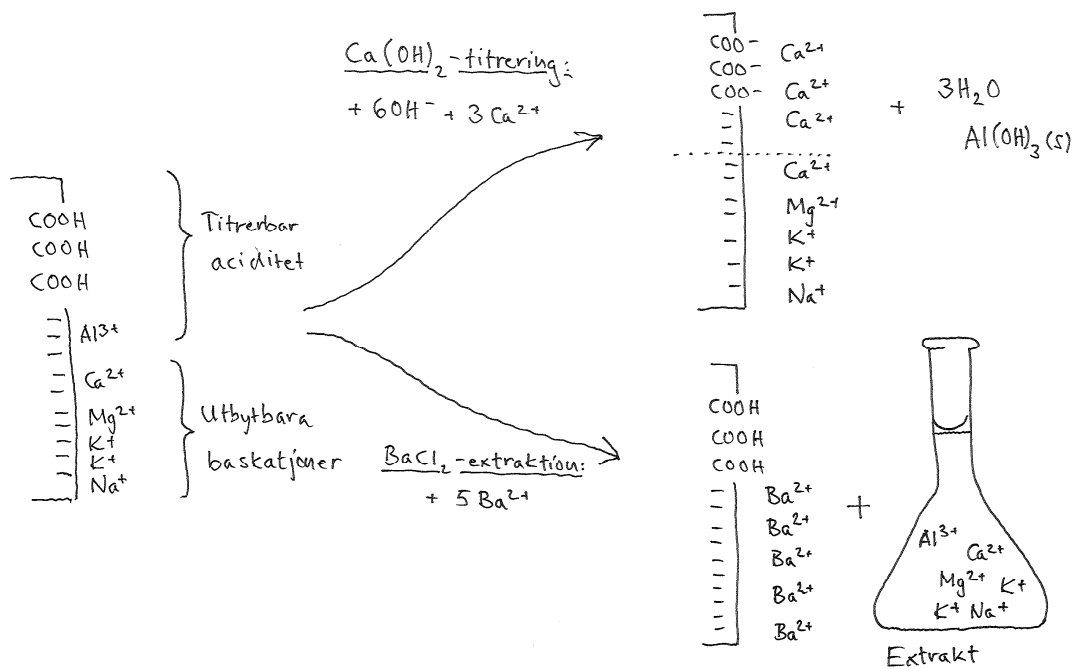 COOH
COOH
COOH
Al3+
Ca2+
Mg2+
K+
K+
Na+
Titrerbar
aciditet
Utbytbara
baskatjoner
Ca(OH)2-titrering:
+ 6OH- + 3Ca2+
BaCl2-extraktion:
+ 5Ba2+
COO-
COO-
COO-
Ca2+
Ca2+
Ca2+
Ca2+
Mg2+
K+
K+
Na+
+ 3H2O
Al(OH)3(s)
COOH
COOH
COOH
Ba2+
Ba2+
Ba2+
Ba2+
Ba2+
+
Al3+
Ca2+
Mg2+ K+
K+ Na+
Extrakt